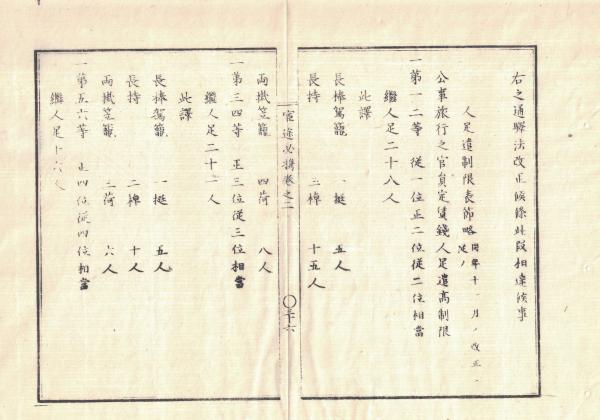 右之通驛法改正候條此段相達候事
人足遣制限表節略
公事旅行之官員定賃錢人足遣高制限
一第一二等 従一位正二位従二位相當
繼人足二十八人
此譯
長棒駕籠 一挺 五人
長持 三棹 十五人
官途必携巻之二 三十六
両掛笠籠 四荷 八人
一第三四等 正三位従三位相當
繼人足二十一人
此譯
長棒駕籠 一挺 五人
長持 二棹 十人
両掛笠籠 三荷 六人
一第五六等 正四位従四位相當
繼人足十六人